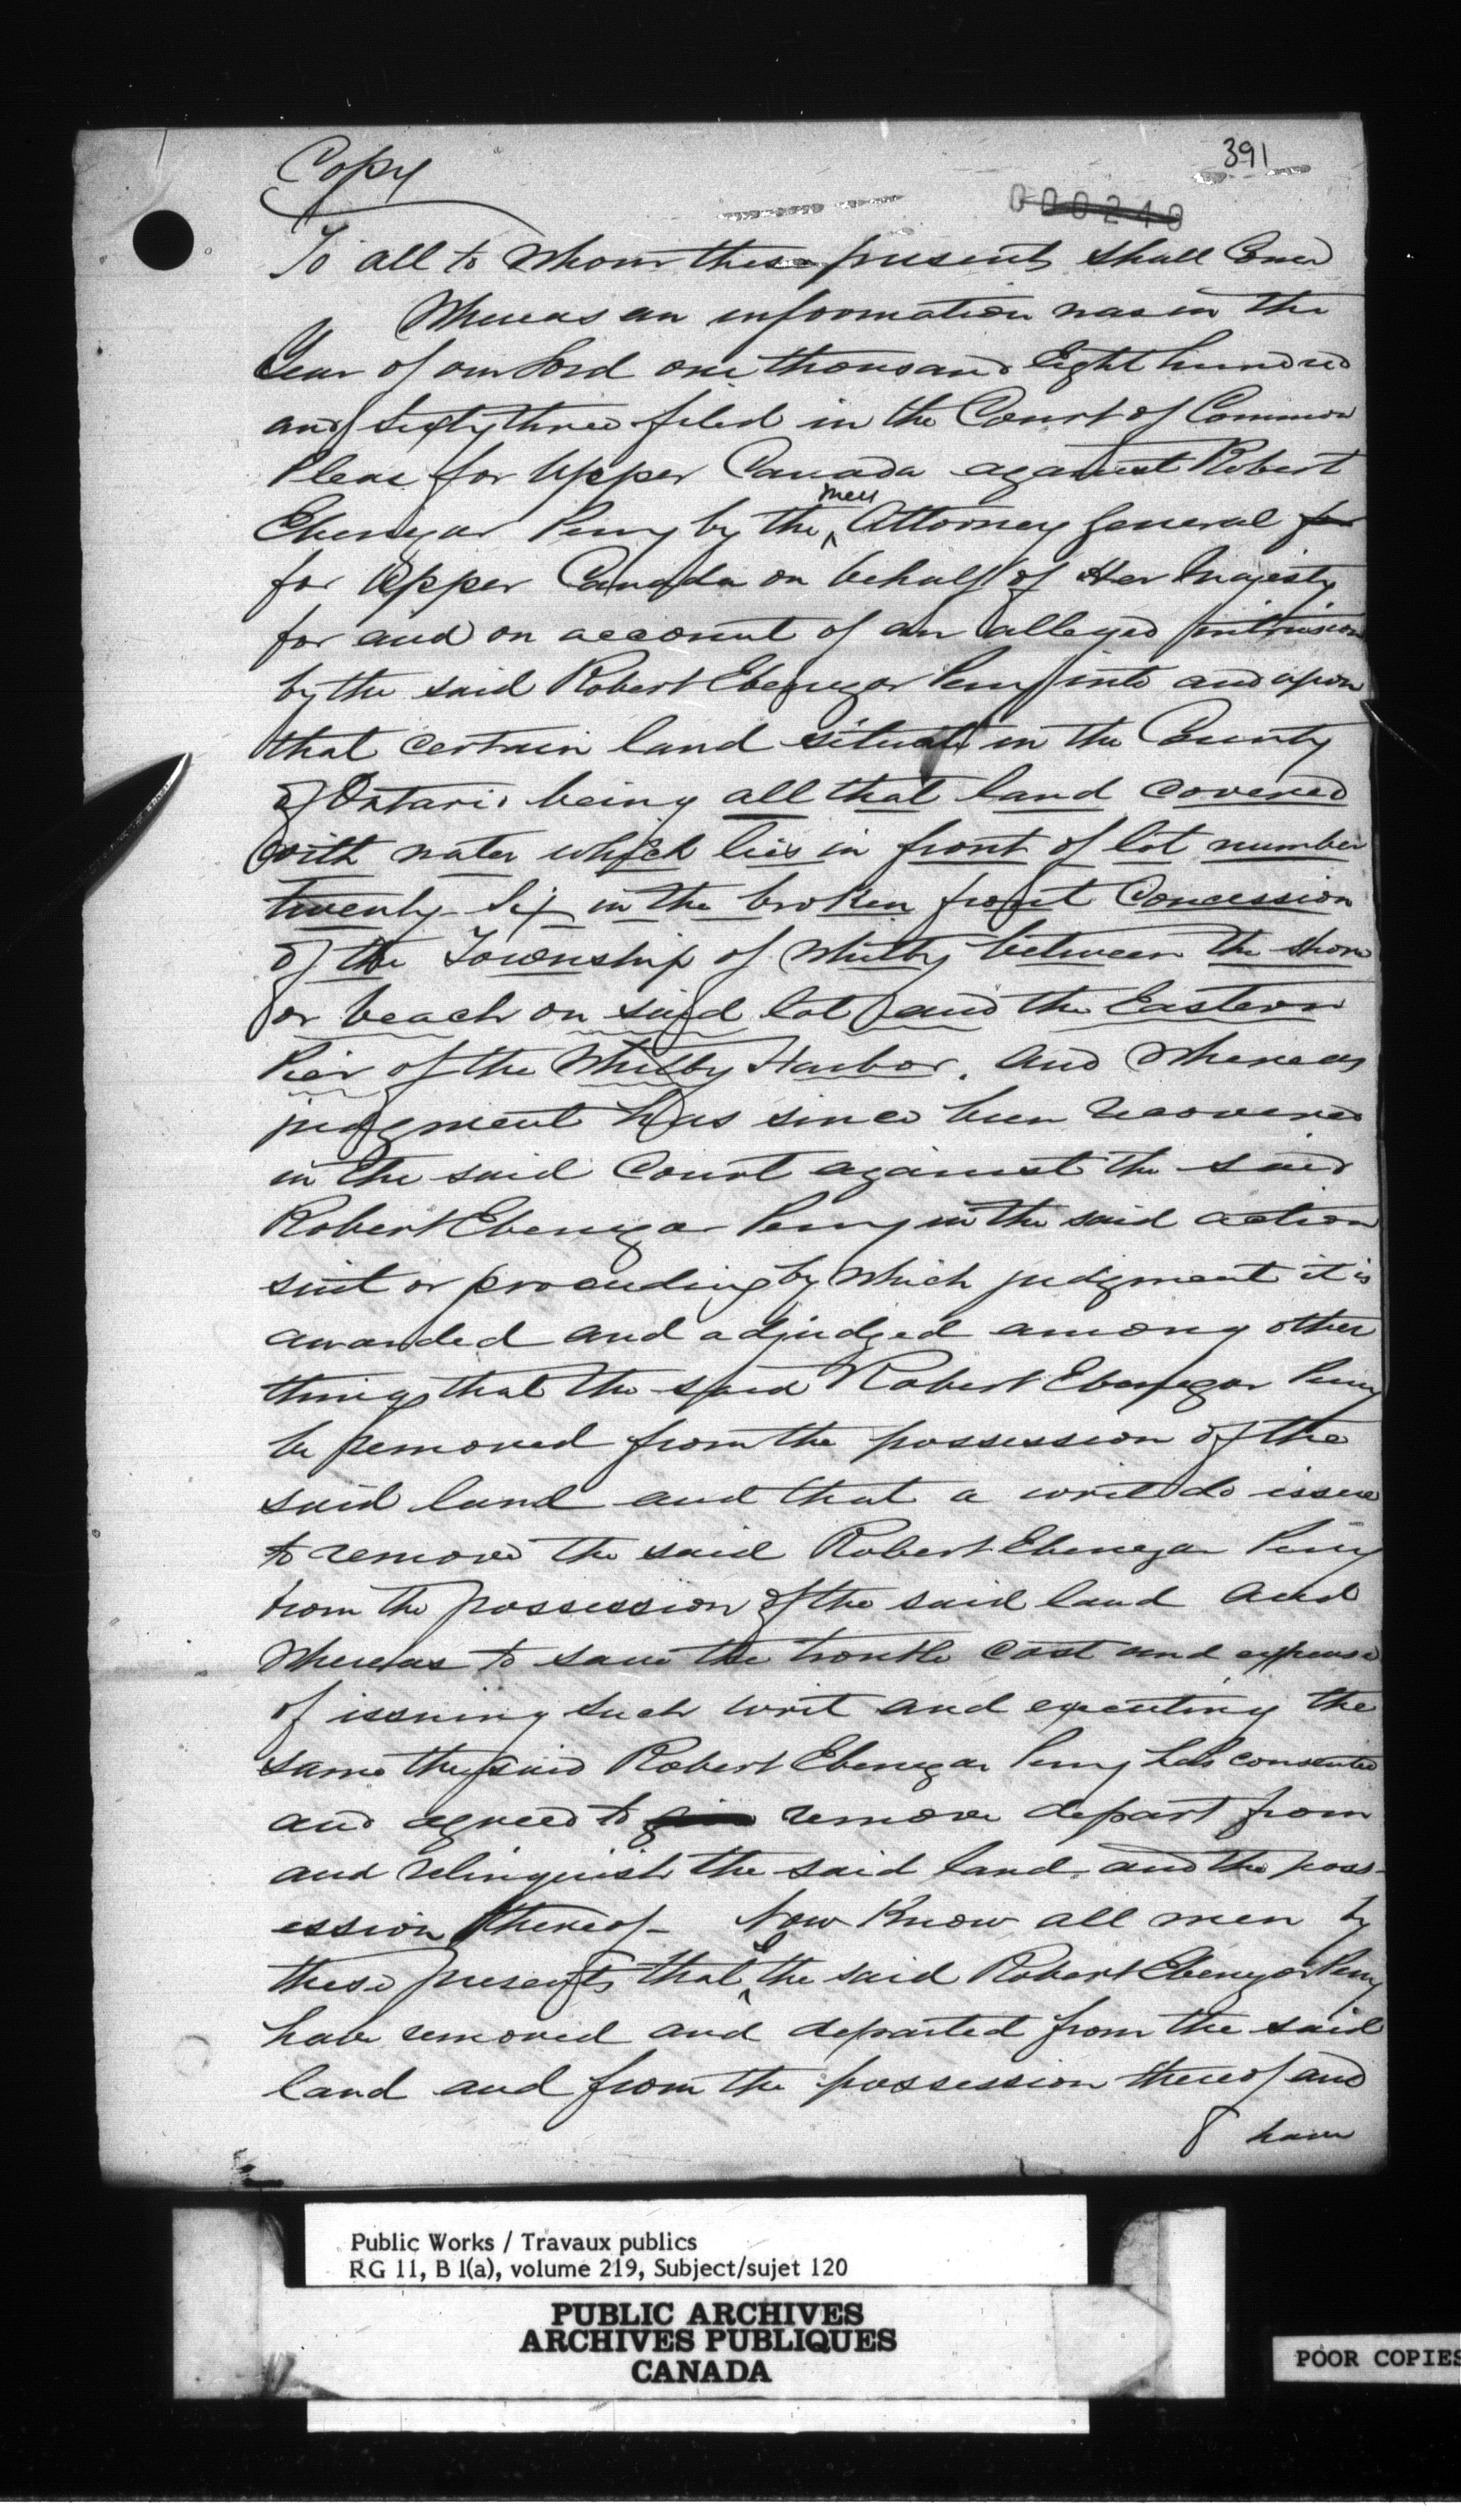 Copy
391
000240
To all to whom these presents shall Come
Whereas an information was in the
Year of our Lord one thousand Eight hundred
and Sixty three filed in the Court of Common
Pleas for Upper Canada against Robert
Ebenezar Perry by the Attorney General for
for Upper Canada on behalf of Her Majesty
for and on account of an alleged intrusion
by the said Robert Ebenezar Perry into and upon
that certain land situate in the County
of Ontario being all that land covered
with water which lies in front of lot number
twenty-Six in the broken front Concession
of the Township of Whitby between the shore
or beach on said lot and the Eastern
Pier of the Whitby Harbor. And Whereas
judgment has since been recovered
in the said Court against the said
Robert Ebenezar Perry in the said action
suit or proceeding by which judgment it is
awarded and adjudged among other
things that the said Robert Ebenezar Perry
be removed from the possession of the
said land and that a writ do issue
to remove the said Robert Ebenezar Perry
from the possession of the said land And
Whereas to save the trouble cost and expense
of issuing such writ and executing the
same the said Robert Ebenezar Perry has consented
and agreed to remove depart from
and relinquish the said land and the poss-
ession thereof- Now Know all men by
these presents that I the said Robert Ebenezar Perry
have removed and departed from the said
land and from the possession thereof and
8 have
Public Works / Travaux publics
RG 11, B 1(a), volume 219, Subject/sujet 120
PUBLIC ARCHIVES
ARCHIVES PUBLIQUES
CANADA
POOR COPIES